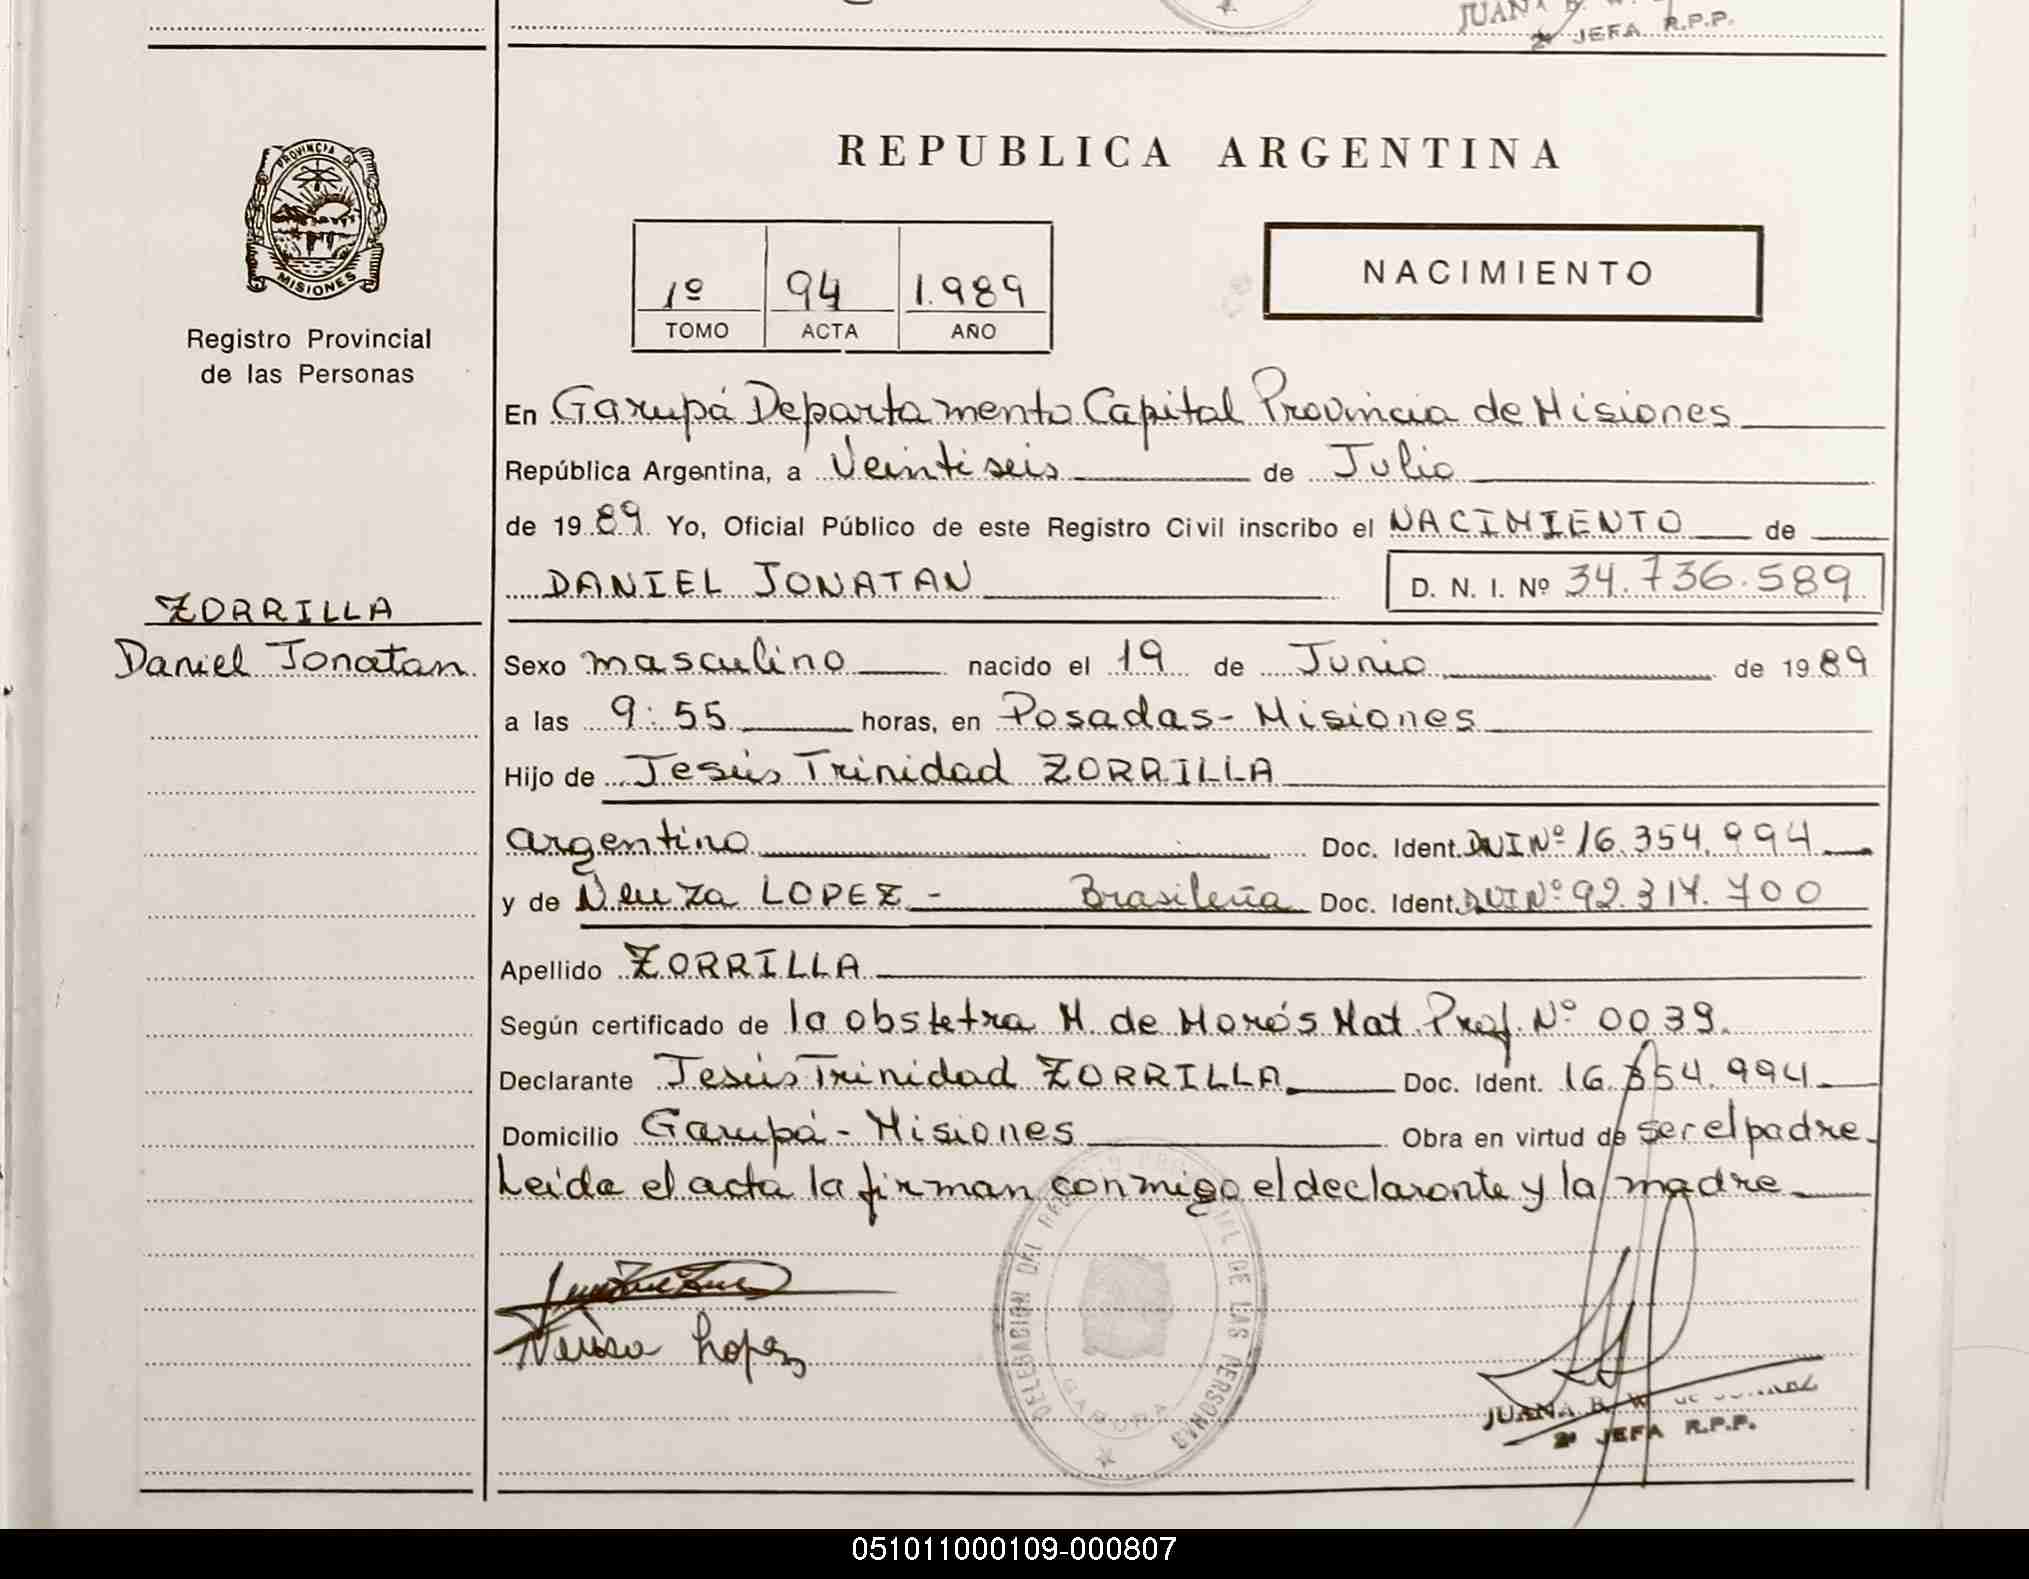 JUANA B. W.
2ª JEFA R.P.P.
PROVINCIA DE
MISIONES
Registro Provincial
de las Personas
REPUBLICA ARGENTINA
1º 94 1.989
TOMO ACTA AÑO
NACIMIENTO
En Garupá Departamento Capital Provincia de Misiones
República Argentina, a Veintiseis de Julio
de 1989 Yo, Oficial Público de este Registro Civil inscribo el NACIMIENTO de
DANIEL JONATAN D. N. I. Nº 34.736.589
ZORRILLA
Daniel Jonatan
Sexo masculino nacido el 19 de Junio de 1989
a las 9:55 horas, en Posadas - Misiones
Hijo de Jesús Trinidad ZORRILLA
argentino Doc. Ident. DNI Nº 16.354.994
y de Neuza LOPEZ - Brasileña Doc. Ident. DNI Nº 92.314.700
Apellido ZORRILLA
Según certificado de la obstetra M. de Morós Mat. Prof. Nº 0039.
Declarante Jesús Trinidad ZORRILLA Doc. Ident. 16.354.994
Domicilio Garupá - Misiones Obra en virtud de ser el padre.
Leida el acta la firman conmigo el declarante y la madre
Neusa Lopez
DELEGACION DEL REGISTRO PROVINCIAL DE LAS PERSONAS
GARUPA
JUANA B. W. de
2ª JEFA R.P.P.
051011000109-000807